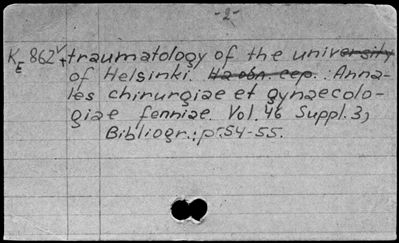 -2-
K E 862 V + traumatology of the university
of Helsinki. На обл. сер.: Anna-
les chirurgiae et gynaecolo-
giae fenniae. Vol. 46 Suppl. 3)
Bibliogr.: p. 54-55.